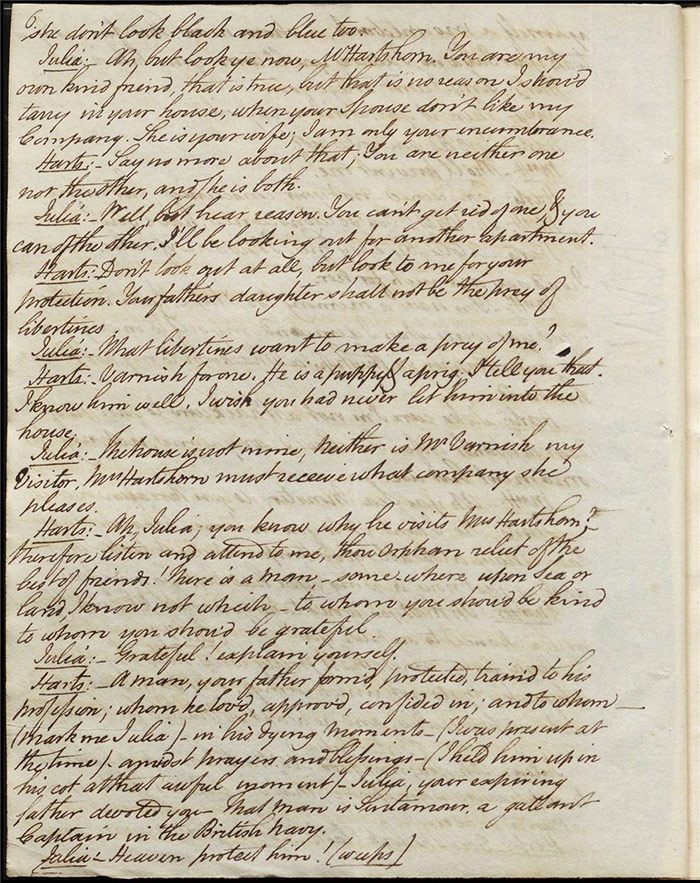 6.
she don't look black and blue too.
Julia:- Ah, but look ye now, Mr Hartshorn. You are my
own kind friend, that is true, but that is no reason I shou'd
tarry in your house, when your Spouse don't like my
Company. She is your wife; I am only your incumbrance.
Harts:- Say no more about that; You are neither one
nor the other, and she is both.
Julia:- Well, but hear reason. You can't get rid of one, & you
can of the other. I'll be looking out for another apartment.
Harts:- Don't look out at all, but look to me for your
protection. Your father's daughter shall not be the prey of
libertines.
Julia:- What libertines want to make a prey of me?
Harts:- Varnish for one. He is a puppy & a prig. I tell you that.
I know him well. I wish you had never let him into the
house.
Julia:- The house is not mine, Neither is Mr Varnish my
Visitor, Mrs Hartshorn must receive what company she
pleases.
Harts:- Ah, Julia, you know why he visits Mrs Hartshorn;
therefore listen and attend to me, thou Orphan relict of the
best of friends! There is a man,- some-where upon Sea or
land, I know not which,- to whom you shou'd be kind
to whom you shou'd be grateful.
Julia:- Grateful! explain yourself.
Harts:- A man, your father form'd, protected, train'd to his
profession; whom he lov'd, approv'd, confided in,; and to whom—
(mark me Julia)- in his dying moments- (I was present at
the time)- amidst prayers and blessings- (I held him up in
his cot at that awful moment)- Julia, your expiring
father devoted you- That man is Sintamour, a gallant
Captain in the British Navy.
Julia:- Heaven protect him! (weeps)